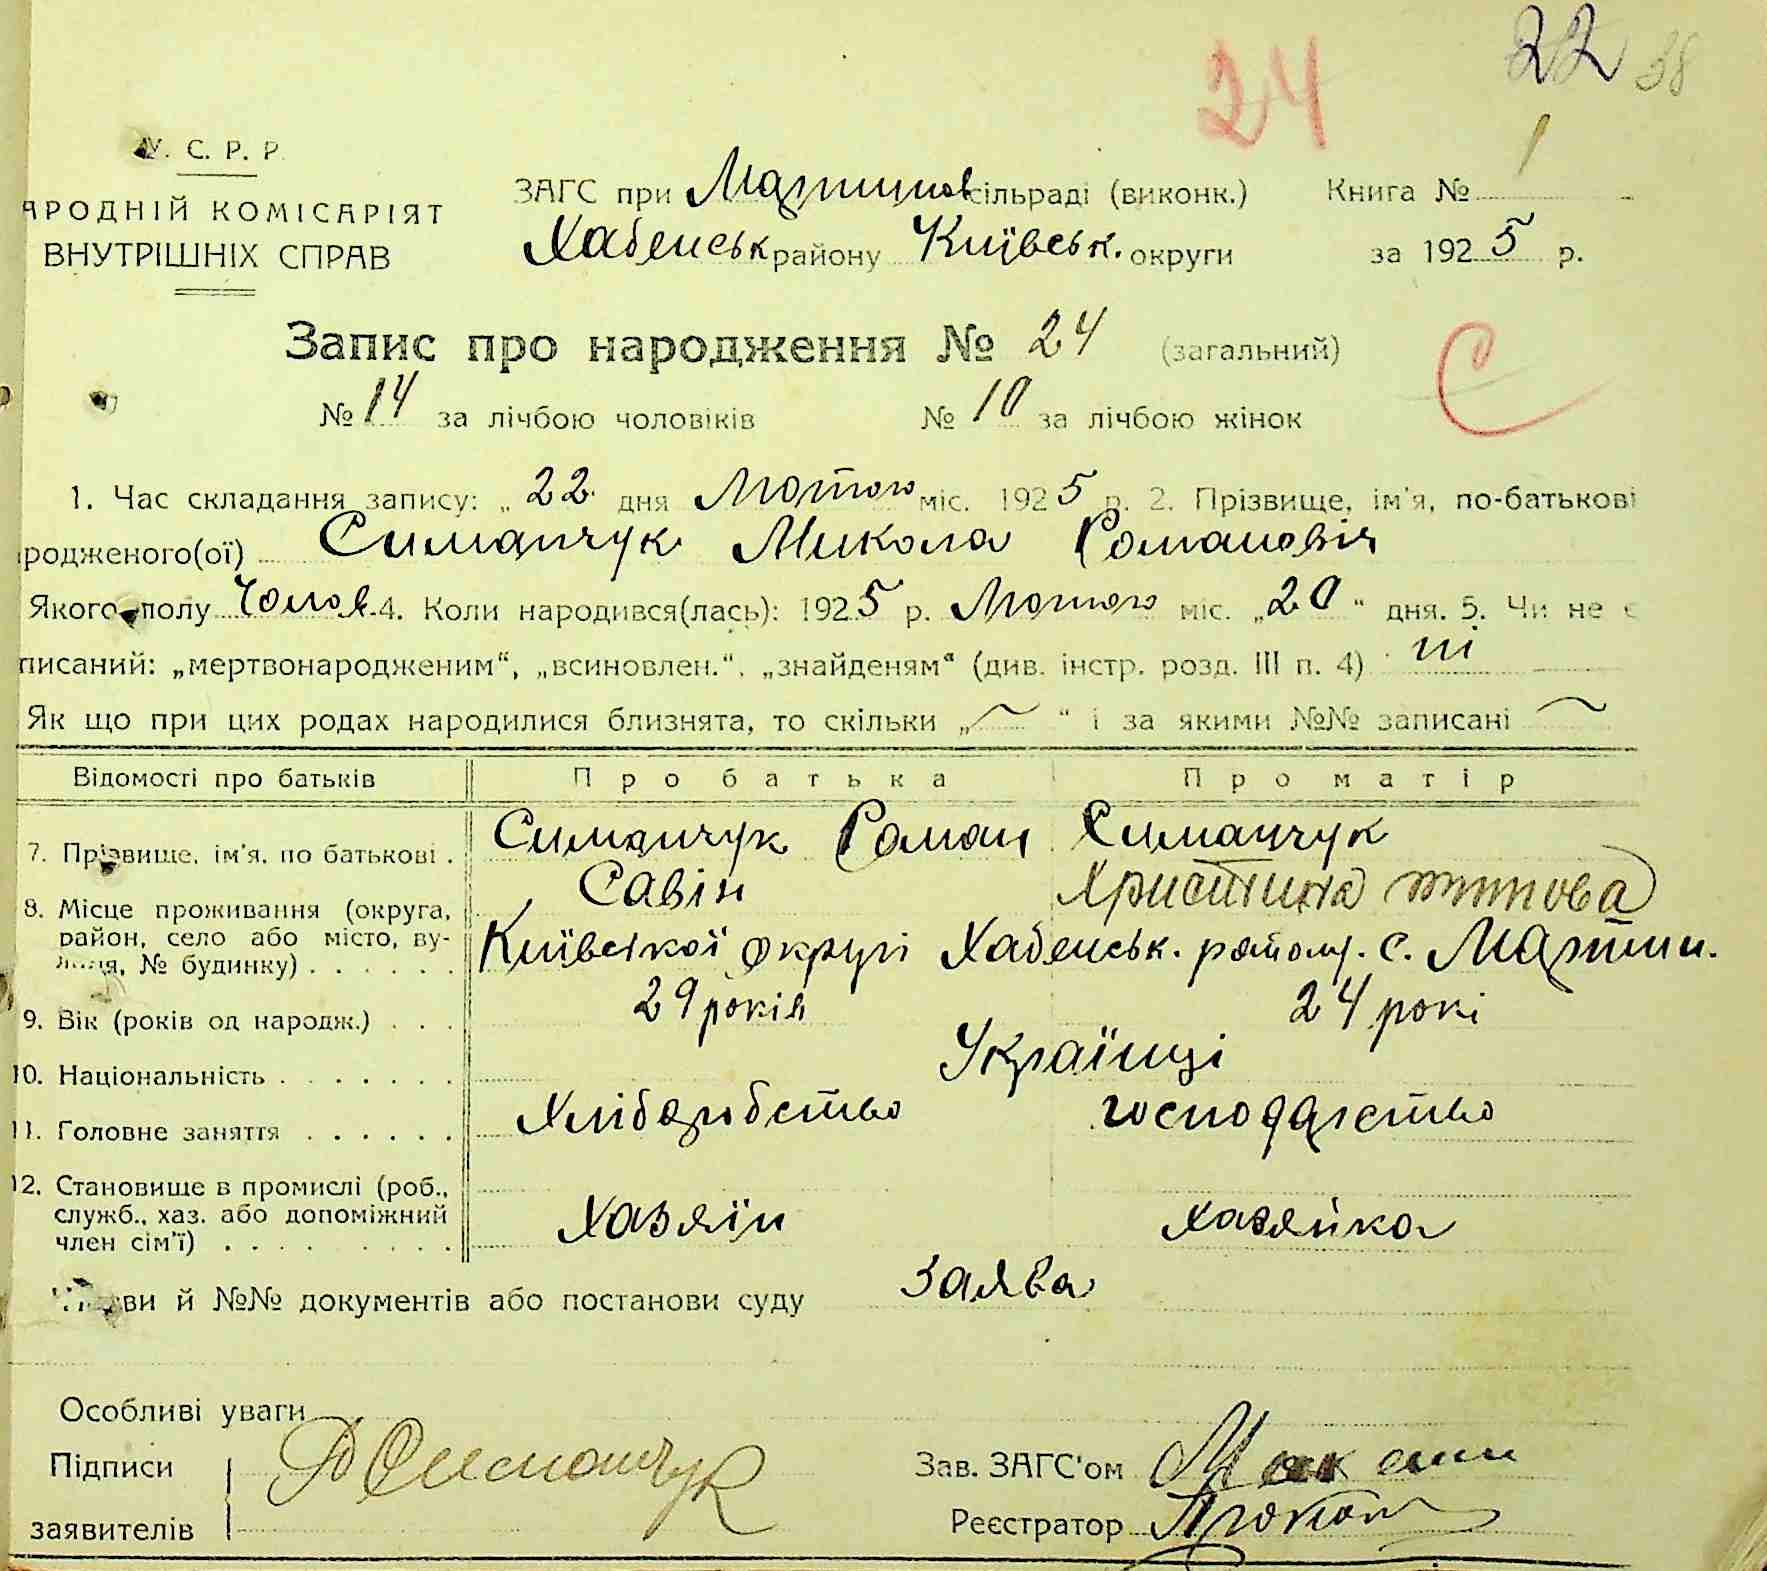 24 22 38
У. С. Р. Р.
АРОДНІЙ КОМІСАРІЯТ
ВНУТРІШНІХ СПРАВ
ЗАГС при Мартинов сільраді (виконк.) Книга № 1
Хабенськ району Київськ. округи за 1925 р.
Запис про народження № 24 (загальний)
С
№ 14 за лічбою чоловіків № 10 за лічбою жінок
1. Час складання запису: „22 дня Лютого міс. 1925 р. 2. Прізвище, ім'я, по-батькові
родженого(ої) Симанчук Микола Романовіч
Якого полу Чолов. 4. Коли народився(лась): 1925 р. Лютого міс. „20“ дня. 5. Чи не є
писаний: „мертвонародженим“, „всиновлен.“, „знайденям“ (див. інстр. розд. III п. 4) ні
Як що при цих родах народилися близнята, то скільки „—“ і за якими №№ записані —
Відомості про батьків Про батька Про матір
7. Прізвище, ім'я, по батькові . Симанчук Роман Савін Симанчук Христина Титова
8. Місце проживання (округа,
район, село або місто, ву-
лиця, № будинку) . . . . . . Київської округі Хабенськ. району. с. Мартин.
9. Вік (років од народж.) . . . 29 років 24 рокі
10. Національність . . . . . . . Українці
11. Головне заняття . . . . . . Хліборобство господарство
12. Становище в промислі (роб.,
служб., хаз. або допоміжний
член сім'ї) . . . . . . . . . Хазяїн хазяйка
ви й №№ документів або постанови суду Заява
Особливі уваги
Підписи Р Симанчук Зав. ЗАГС'ом
заявителів Реєстратор